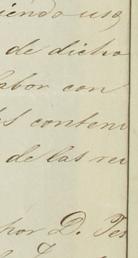 iendo uso,
de dicho
labor con
s conteni
de las re
por D. Tes